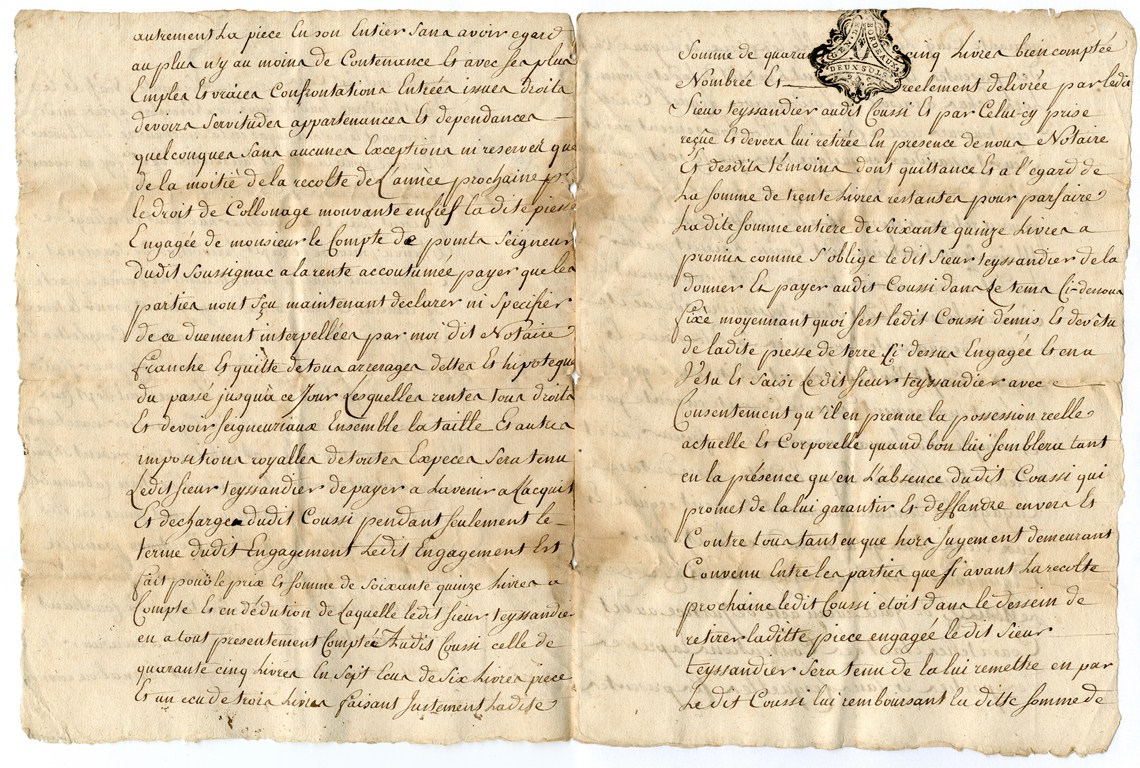 autrement La piece En son Entier sans avoir egard
au plus n'y au moins de Contenance Et avec ses plus
Emples Et vraies Confrontations Entrées issues Droits
devoirs Servitudes appartenances Et dependances
quelconques sans aucunes Exceptions ni reserves que
de la moitié de la recolte de L'année prochaine
le droit de Collonage mouvante en fief la dite piesse
Engagée de monsieur le Compte de ponts Seigneur
dudit Soussignac a la rente accoutumée payer que les
parties nont sçu maintenant declarer ni specifier
de ce duement interpellées par moi dit Notaire
franche Et quitte de tous arrerages dettes Et hipoteque
du passé jusquà ce Jour Lesquelles rentes tous droits
Et devoir seigneuriaux Ensemble la taille Et autres
impositions royalles de toutes Expeces Sera tenu
Ledit sieur teyssandier de payer a Lavenir a Lacquit
Et decharge dudit Coussi pendant seulement le
terme dudit Engagement Ledit Engagement Est
fait pour le prix Et somme de Soixante quinze Livres a
Compte Et en dédution de Laquelle ledit sieur teyssandier
en a tout presentement Compteé Audit Coussi celle de
quarante cinq Livres En Sept Ecus de Six Livres piece
Et un ecu de trois Livres faisant Justement Ladite
GEN. DE BORDEAUX
DEUX SOLS
Somme de quara cinq Livres bien comptée
Nombrée Et reelement delivrée par ledit
Sieur teyssandier audit Coussi Et par Celui-cy prise
reçue Et devers lui retirée En presence de nous Notaire
Et desdits témoins dont quittance Et a l'egard de
La somme de trente Livres restantes pour parfaire
La dite somme entiere de soixante quinze Livres a
promis comme S'oblige le dit Sieur teyssandier de la
donner Et payer audit Coussi dans Le tems Ci-dessous
fixé moyennant quoi s'est ledit Coussi démis Et devêtu
de ladite piesse de terre Ci dessus Engagée Et en a
Vétu Et Saisi Le dit sieur teyssandier avec
Consentement qu'il en prenne la possession reelle
actuelle Et Corporelle quand bon lui semblera tant
en la présence qu'en L'absence dudit Coussi qui
promet de la lui garantir Et deffandre envers Et
Contre tous tant en que hors jugement demeurant
Convenu Entre les parties que si avant La recolte
prochaine ledit Coussi etoit dans le dessein de
retirer laditte piece engagée le dit Sieur
teyssandier sera tenu de la lui remettre en par
Le dit Coussi lui remboursant la ditte somme de